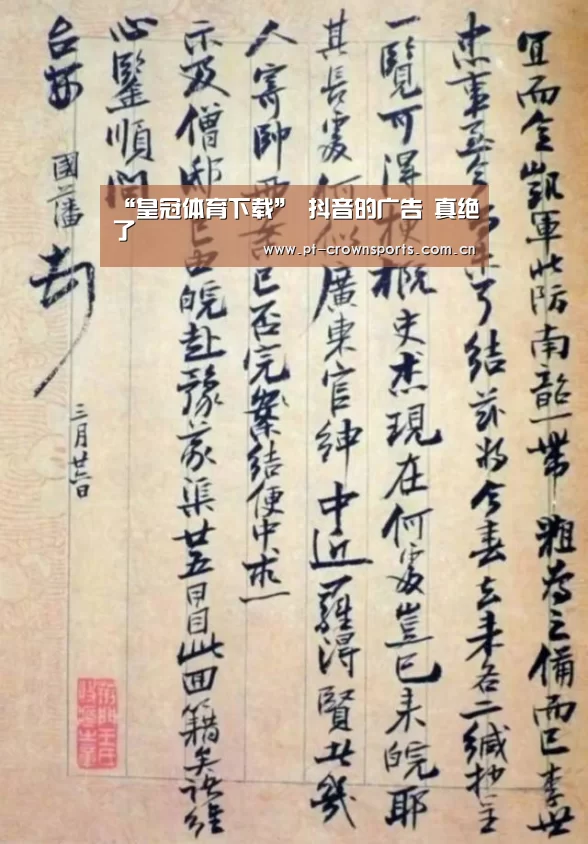 宜而令凱軍北防南韶一帶粗為之備而已李世
忠事至今
了結茲將今春去來各二緘抄呈
一覽可得梗概史杰現在何處豈已來皖耶
其長處何似廣東官紳中近羅得賢者幾
人寄帥
已否完案結便中求一
示及僧邸已由皖赴豫蒙渠廿五日自此回籍矣諸維
心鑒順問
台安 國藩 頓
三月廿二日
“皇冠体育下载” 抖音的广告 真绝
了
www.pt-crownsports.com.cn